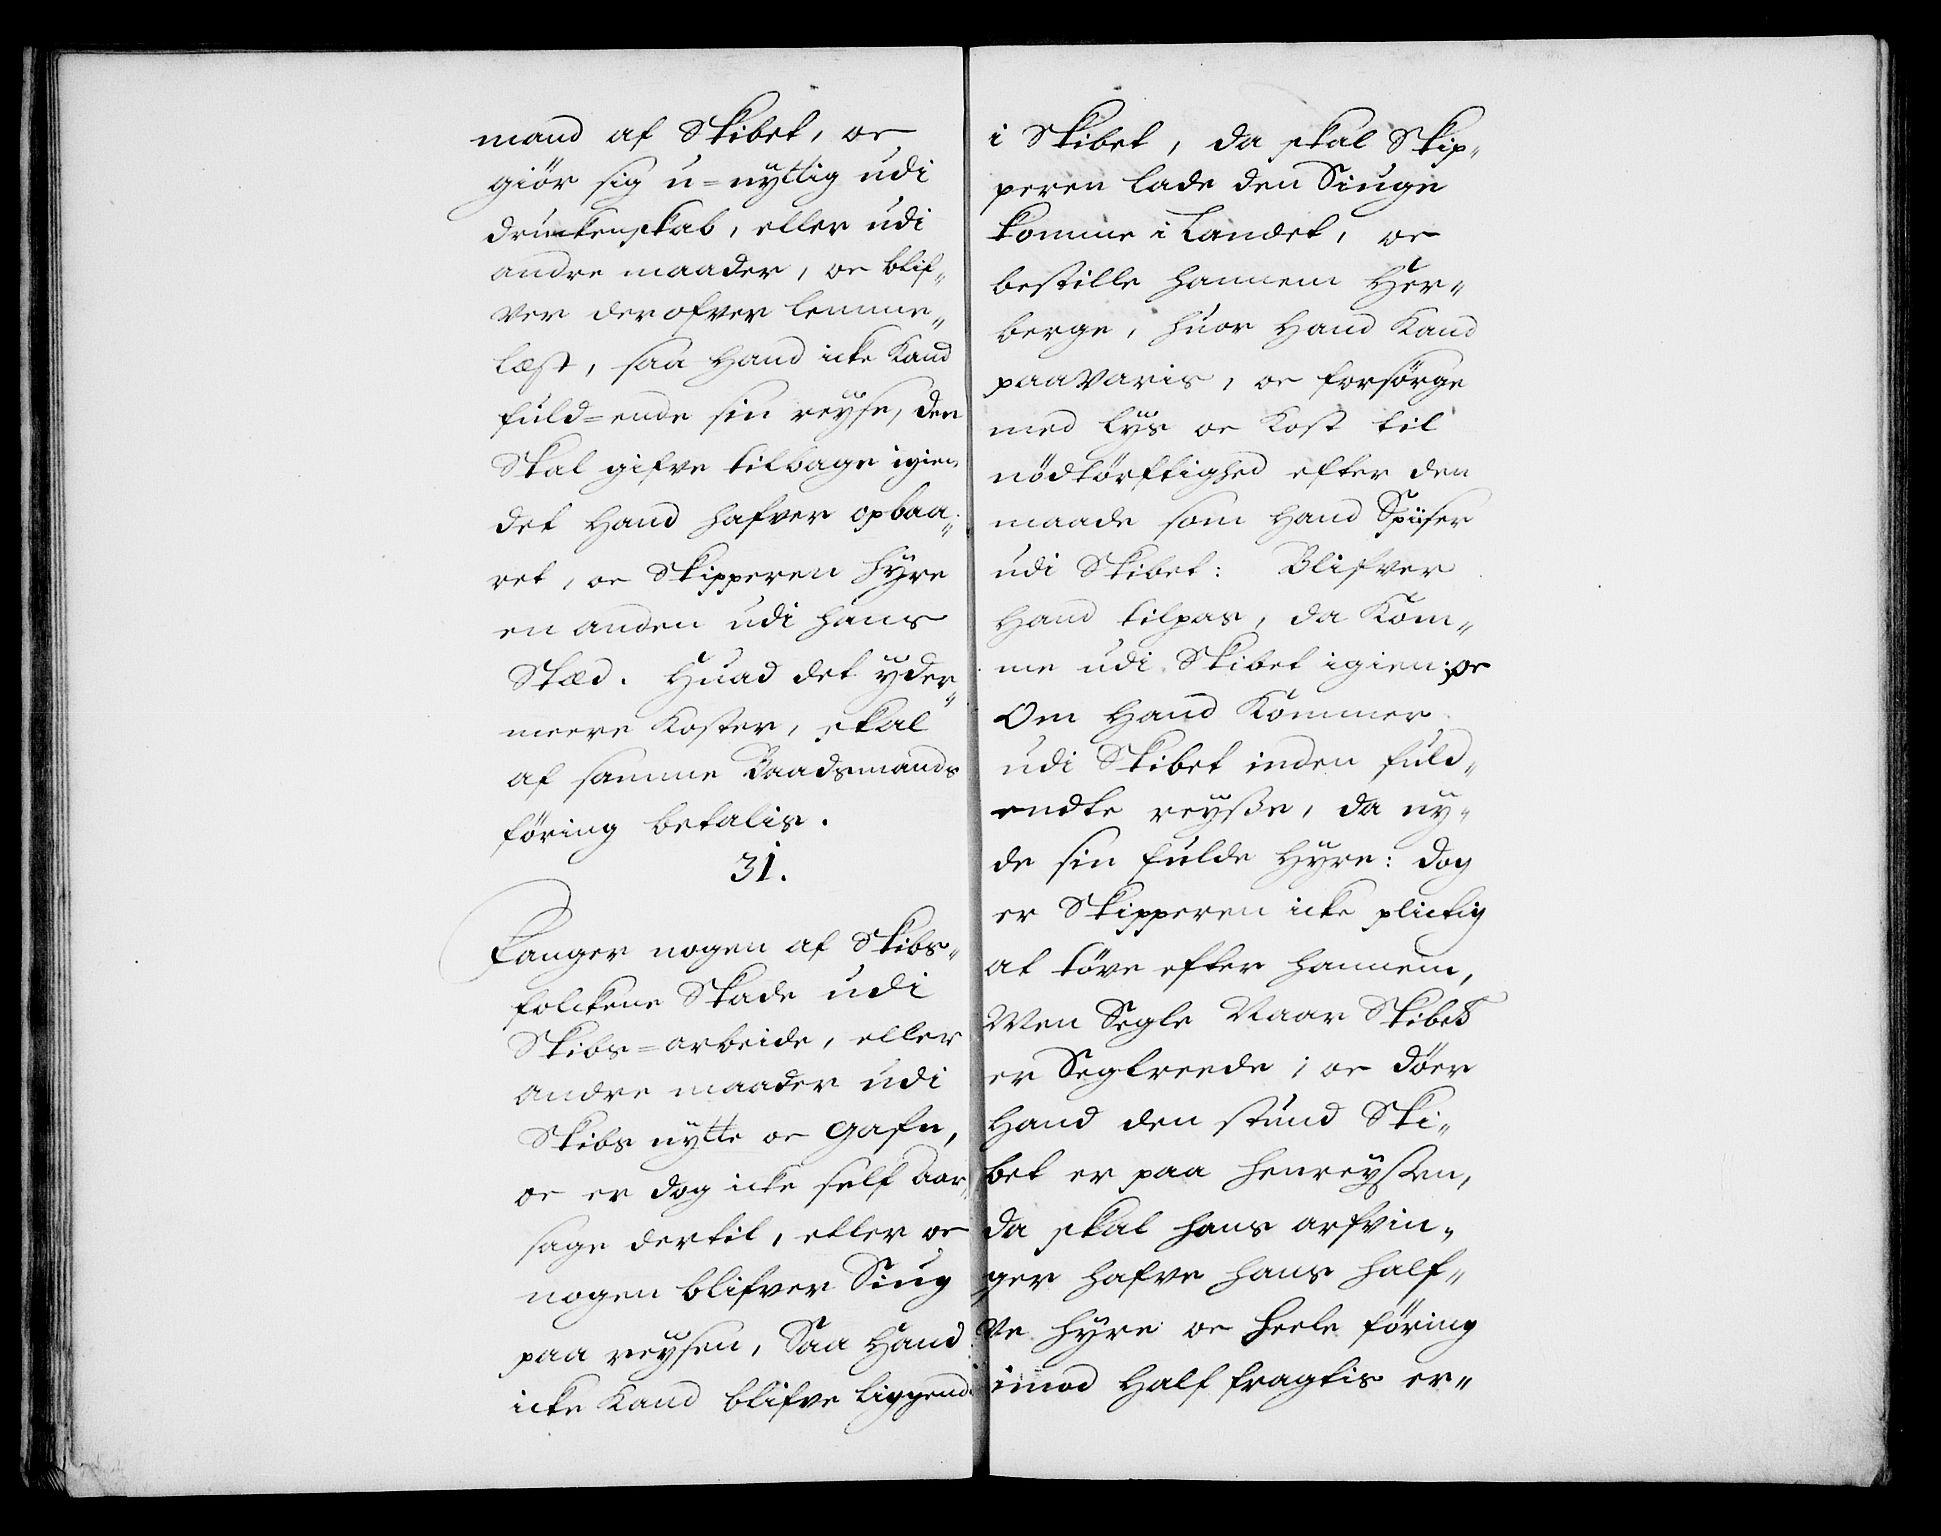 mand af Skibet, oc
giör sig u=nyttig udi
druckenskab, eller udi
andre maader, oc blif„
ver derofver lemme„
læst, saa Hand icke Kand
fuld=ende sin reyse, den
Skal gifve tilbage igien
det Hand hafver opbaa„
ret, oc Skipperen hyre
en anden udi hans
Stæd. Huad det yder„
meere Koster, skal
af samme Baadsmands
föring betalis.
31.
Fanger nogen af Skibs„
folckene Skade udi
Skibs=arbeide, eller
andre maader udi
Skibs nytte oc Gafn,
oc er dog icke self Aar„
sage dertil, eller oc
nogen blifver Siug
paa reysen, Saa Hand
icke Kand blifve liggende
i Skibet, da skal Skip„
peren lade den Siuge
komme i Landet, oc
bestille hannem Her„
berge, huor Hand Kand
paavaris, oc forsörge
med lys oc Kost til
nödtörftighed efter den
maade som Hand Spiiser
udi Skibet: Blifver
Hand tilpas, da Kom„
me udi Skibet igien; oc
Om Hand Kommer
udi Skibet inden fuld„
endte reysse, da ny„
de sin fulde Hyre: dog
er Skipperen icke plictig
at töve efter hannem,
Men Segle Naar Skibet
er Seglreede; oc döer
Hand den stund Ski„
bet er paa henreyssen,
da skal hans arfvin„
ger hafve hans half„
ve hyre oc heele föring
imod Half fragtis er„